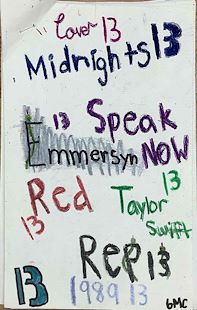 Lover 13
Midnights 13
13 Speak
Emmersyn NOW
Red 13
Taylor 13
Swift
Rep 13
13 1989 13
6MC